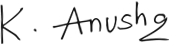 K. Anusha